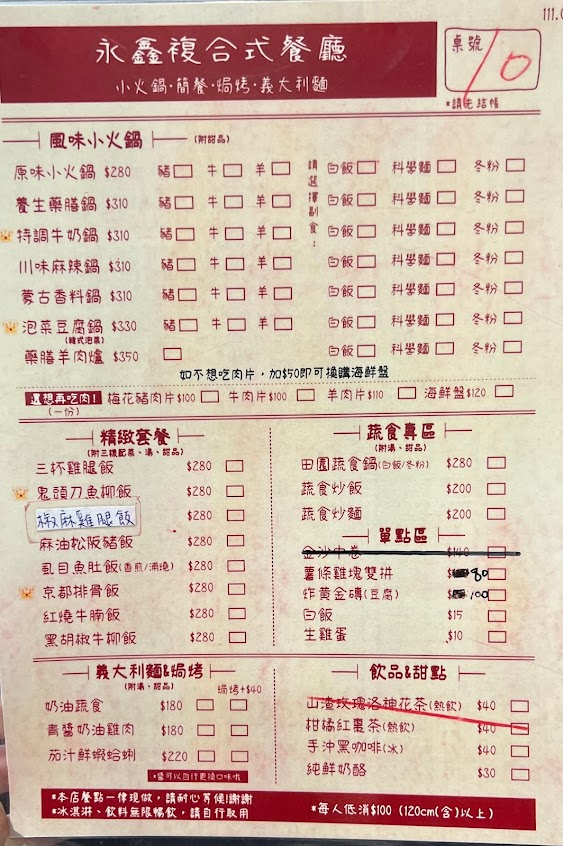 111.0
永鑫複合式餐廳
小火鍋·簡餐·焗烤·義大利麵
桌號 10
*請先結帳
風味小火鍋 (附甜品)
請選擇副食：
原味小火鍋 $280 豬 牛 羊 白飯 科學麵 冬粉
養生藥膳鍋 $310 豬 牛 羊 白飯 科學麵 冬粉
特調牛奶鍋 $310 豬 牛 羊 白飯 科學麵 冬粉
川味麻辣鍋 $310 豬 牛 羊 白飯 科學麵 冬粉
蒙古香料鍋 $310 豬 牛 羊 白飯 科學麵 冬粉
泡菜豆腐鍋 $330 豬 牛 羊 白飯 科學麵 冬粉
(韓式泡菜)
藥膳羊肉爐 $350 白飯 科學麵 冬粉
如不想吃肉片，加$50即可換購海鮮盤
還想再吃肉! 梅花豬肉片$100 牛肉片$100 羊肉片$110 海鮮盤$120
(一份)
精緻套餐
(附三樣配菜、湯、甜品)
三杯雞腿飯 $280
鬼頭刀魚柳飯 $280
椒麻雞腿飯 $280
麻油松阪豬飯 $280
虱目魚肚飯(香煎/浦燒) $280
京都排骨飯 $280
紅燒牛腩飯 $280
黑胡椒牛柳飯 $280
蔬食專區
(附湯、甜品)
田園蔬食鍋(白飯/冬粉) $280
蔬食炒飯 $200
蔬食炒麵 $200
單點區
金沙中卷 $140
薯條雞塊雙拼 $ 80
炸黃金磚(豆腐) $ 100
白飯 $15
生雞蛋 $10
義大利麵&焗烤
(附湯、甜品) 焗烤+$40
奶油蔬食 $180
青醬奶油雞肉 $180
茄汁鮮蝦蛤蜊 $220
*當可以自行更換口味哦
飲品&甜點
山渣玫瑰洛神花茶(熱飲) $40
柑橘紅棗茶(熱飲) $40
手沖黑咖啡(冰) $40
純鮮奶酪 $30
*本店餐點一律現做，請耐心等候!謝謝
*冰淇淋、飲料無限暢飲，請自行取用
*每人低消$100 (120cm(含)以上)